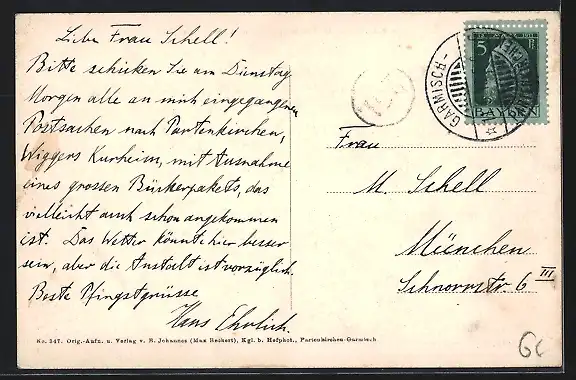 Liebe Frau Schell!
Bitte schicken Sie am Dienstag
Morgen alle an mich eingegangenen
Postsachen nach Partenkirchen,
Wiggers Kurheim, mit Ausnahme
eines grossen Bücherpakets, das
vielleicht auch schon angekommen
ist. Das Wetter könnte hier besser
sein, aber die Anstalt ist vorzüglich.
Beste Pfingstgrüsse
Hans Ehrlich.
No. 347. Orig.-Aufn. u. Verlag v. B. Johannes (Max Beckert), Kgl. b. Hofphot., Partenkirchen-Garmisch
5
BAYERN
GARMISCH-
Frau
M. Schell
München
Schnorrstr. 6 III